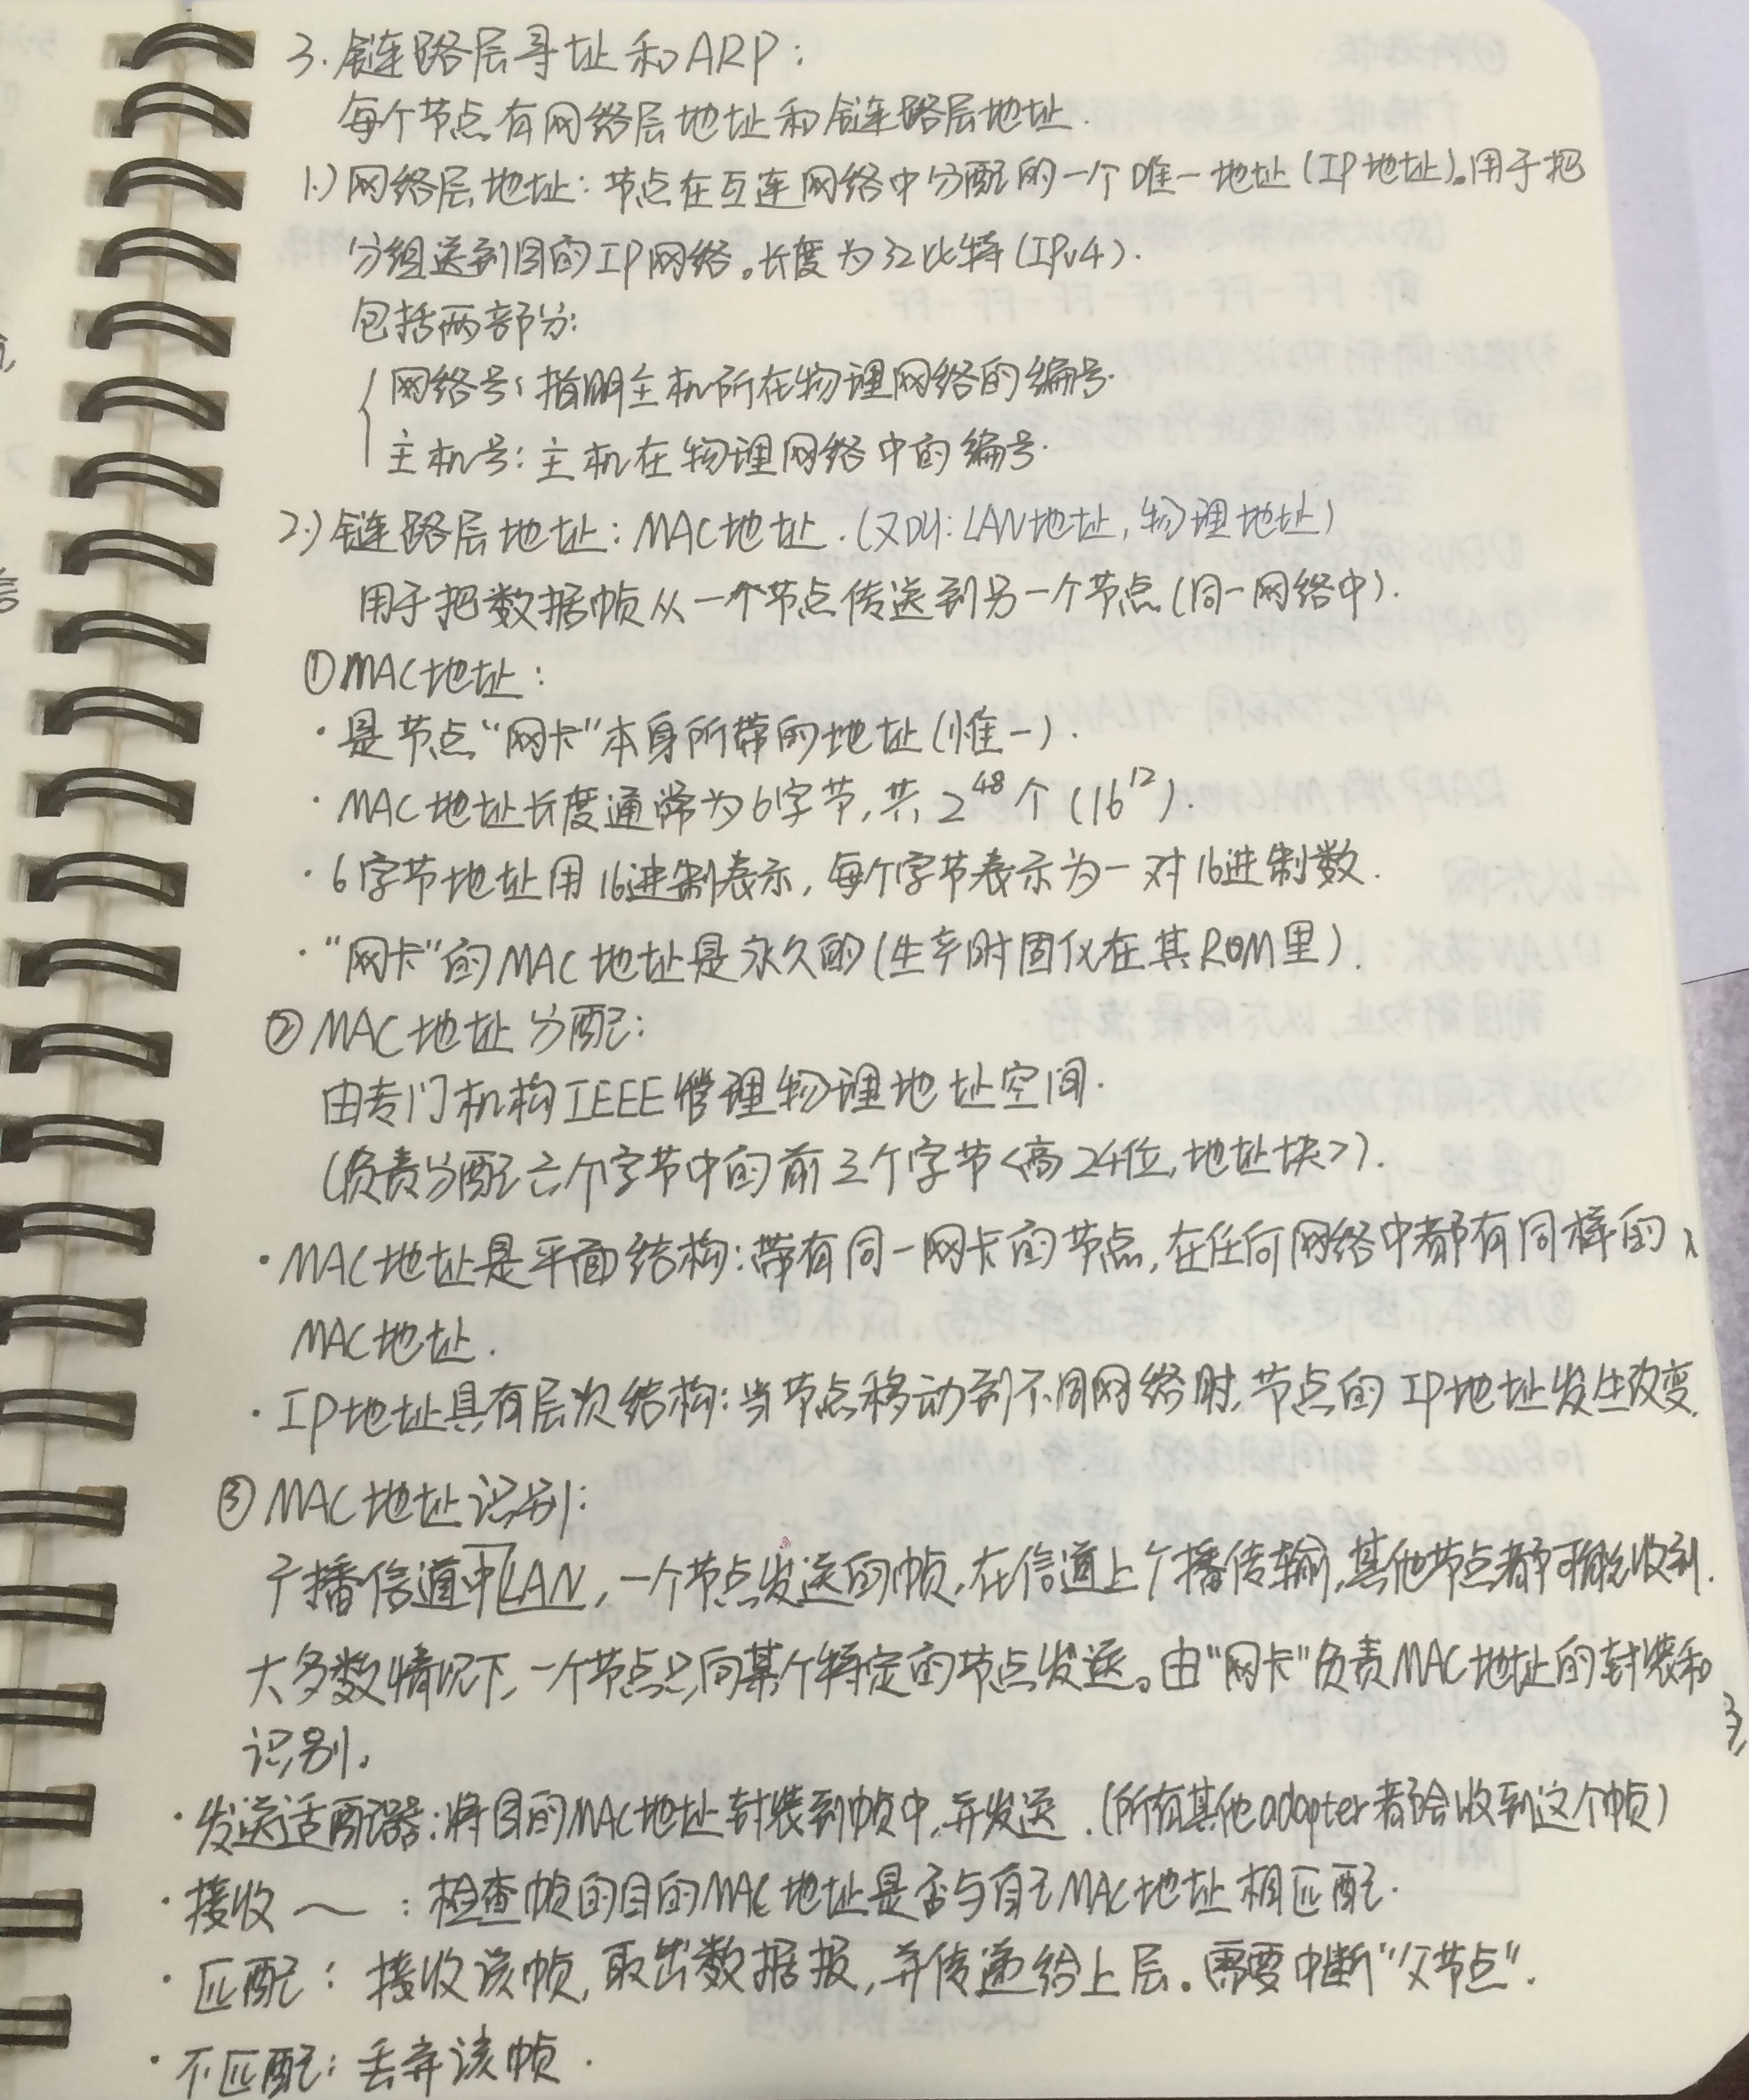 3. 链路层寻址和ARP:
每个节点有网络层地址和链路层地址.
1.) 网络层地址: 节点在互连网络中分配的一个唯一地址(IP地址)。用于把
分组送到目的IP网络。长度为32比特(IPv4).
包括两部分:
网络号: 指明主机所在物理网络的编号.
主机号: 主机在物理网络中的编号.
2.) 链路层地址: MAC地址.(又叫: LAN地址, 物理地址)
用于把数据帧从一个节点传送到另一个节点(同一网络中).
①MAC地址:
·是节点“网卡”本身所带的地址(惟一).
·MAC地址长度通常为6字节, 共2^48个(16^12).
·6字节地址用16进制表示, 每个字节表示为一对16进制数.
·“网卡”的MAC地址是永久的(生产时固化在其ROM里).
②MAC地址分配:
由专门机构IEEE管理物理地址空间.
(负责分配六个字节中的前三个字节<高24位, 地址块>).
·MAC地址是平面结构: 带有同一网卡的节点, 在任何网络中都有同样的
MAC地址.
·IP地址具有层次结构: 当节点移动到不同网络时, 节点的IP地址发生改变.
③MAC地址识别:
广播信道中LAN, 一个节点发送的帧, 在信道上广播传输, 其他节点都可能收到.
大多数情况下, 一个节点只向某个特定的节点发送。由“网卡”负责MAC地址的封装和
识别。
·发送适配器: 将目的MAC地址封装到帧中, 并发送.(所有其他adapter都会收到这个帧)
·接收～: 检查帧的目的MAC地址是否与自己MAC地址相匹配.
·匹配: 接收该帧, 取出数据报, 并传递给上层。需要中断“父节点”.
·不匹配: 丢弃该帧.